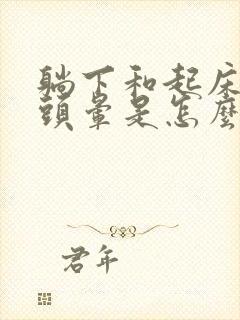 躺下和起床
頭暈是怎麼
君年